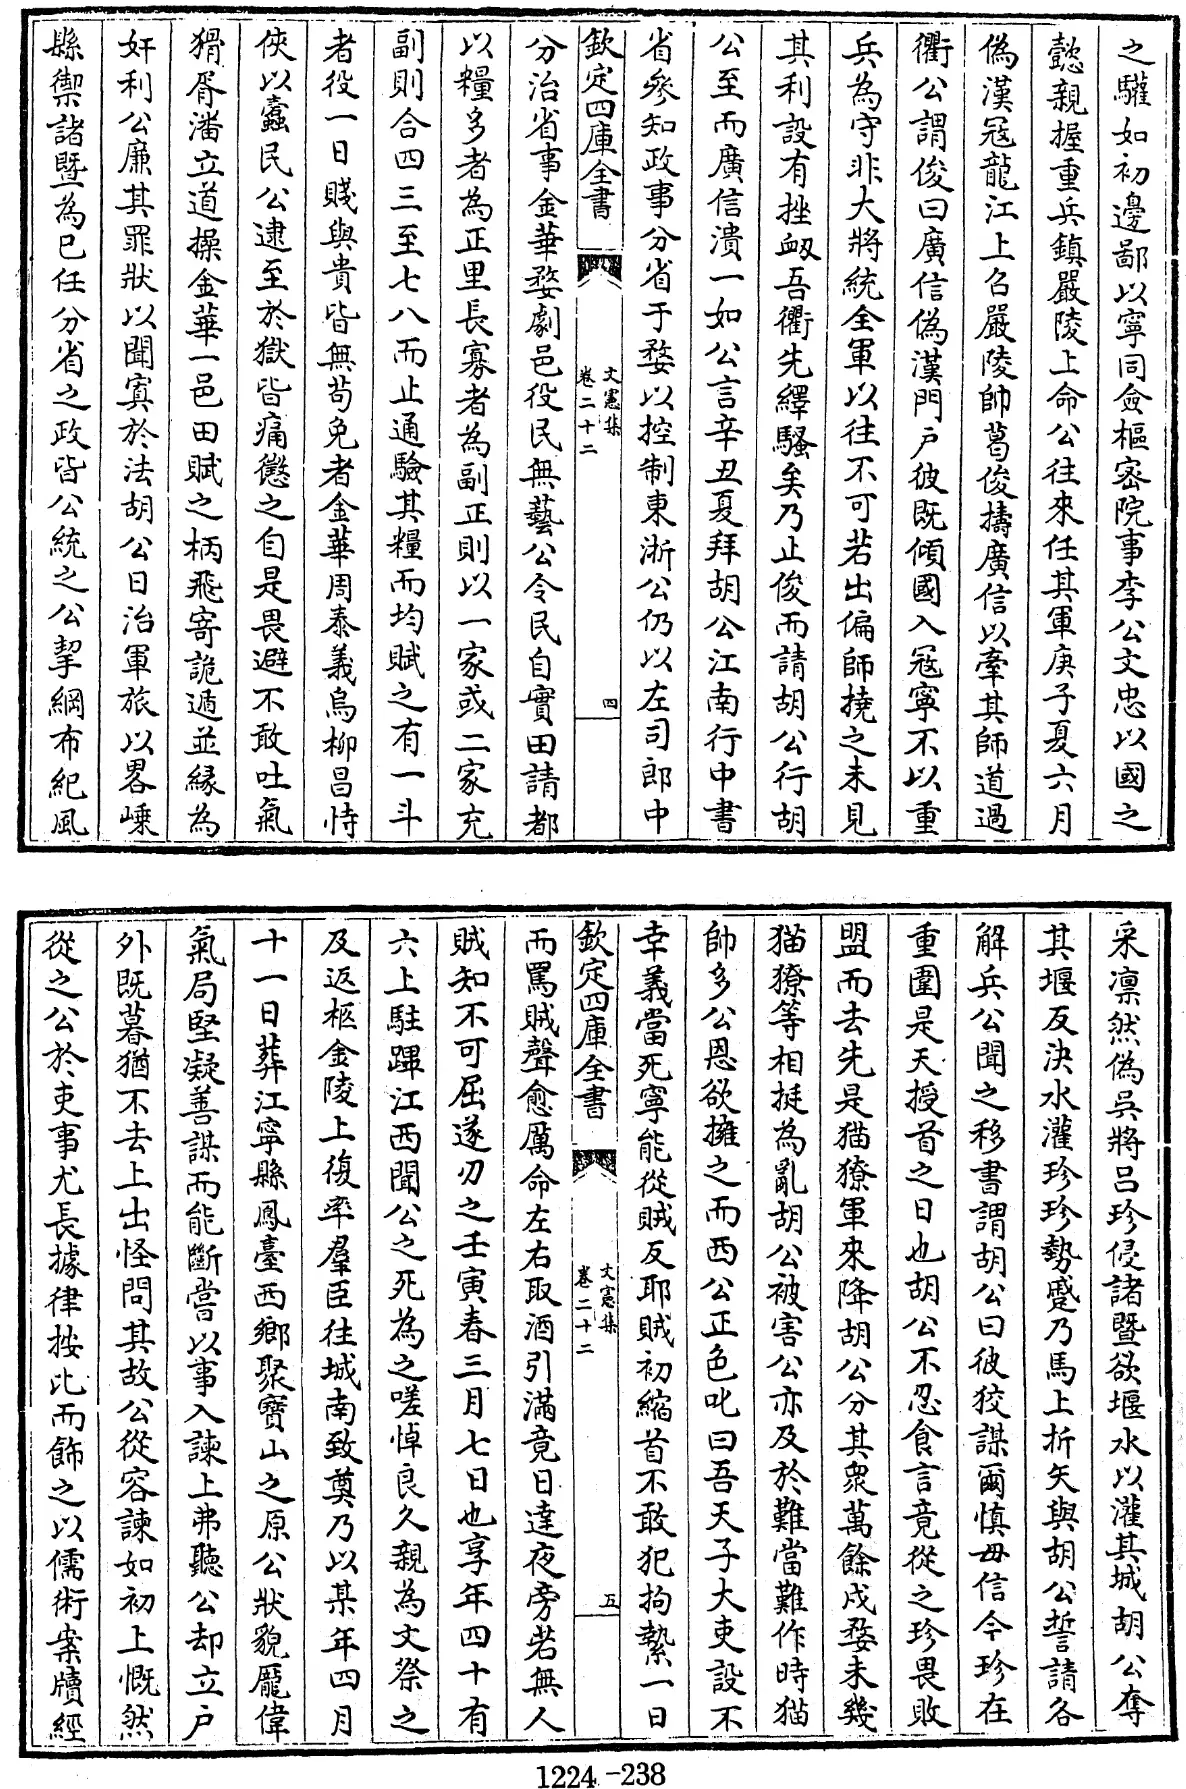 之驩如初邊鄙以寧同僉樞密院事李公文忠以國之
懿親握重兵鎮嚴陵上命公往來任其軍庚子夏六月
偽漢冦龍江上召嚴陵帥葛俊擣廣信以牽其師道過
衢公謂俊曰廣信偽漢門户彼既傾國入冦寧不以重
兵為守非大將統全軍以往不可若出偏師撓之未見
其利設有挫衂吾衢先繹騷矣乃止俊而請胡公行胡
公至而廣信潰一如公言辛丑夏拜胡公江南行中書
省參知政事分省于婺以控制東浙公仍以左司郎中
欽定四庫全書
文憲集
卷二十二
四
分治省事金華婺劇邑役民無藝公令民自實田請都
以糧多者為正里長寡者為副正則以一家或二家充
副則合四三至七八而止通驗其糧而均賦之有一斗
者役一日賤與貴皆無苟免者金華周泰義烏柳昌恃
俠以蠹民公逮至於獄皆痛懲之自是畏避不敢吐氣
猾胥潘立道操金華一邑田賦之柄飛寄詭遁並縁為
奸利公廉其罪狀以聞寘於法胡公日治軍旅以畧嵊
縣禦諸暨為已任分省之政皆公統之公挈綱布紀風
采凛然偽吳將吕珍侵諸暨欲堰水以灌其城胡公奪
其堰反決水灌珍珍勢蹙乃馬上折矢與胡公誓請各
解兵公聞之移書謂胡公曰彼狡謀爾慎毋信今珍在
重圍是天授首之日也胡公不忍食言竟從之珍畏敗
盟而去先是猫獠軍來降胡公分其衆萬餘戍婺未幾
猫獠等相挻為亂胡公被害公亦及於難當難作時猫
帥多公恩欲擁之而西公正色叱曰吾天子大吏設不
幸義當死寧能從賊反耶賊初縮首不敢犯拘縶一日
欽定四庫全書
文憲集
卷二十二
五
而罵賊聲愈厲命左右取酒引滿竟日達夜旁若無人
賊知不可屈遂刃之壬寅春三月七日也享年四十有
六上駐蹕江西聞公之死為之嗟悼良久親為文祭之
及返柩金陵上復率羣臣往城南致奠乃以某年四月
十一日葬江寧縣鳳臺西鄉聚寶山之原公狀貌厖偉
氣局堅凝善謀而能斷嘗以事入諫上弗聽公却立户
外既暮猶不去上出怪問其故公從容諫如初上慨然
從之公於吏事尤長據律按比而飾之以儒術案牘經
1224-238